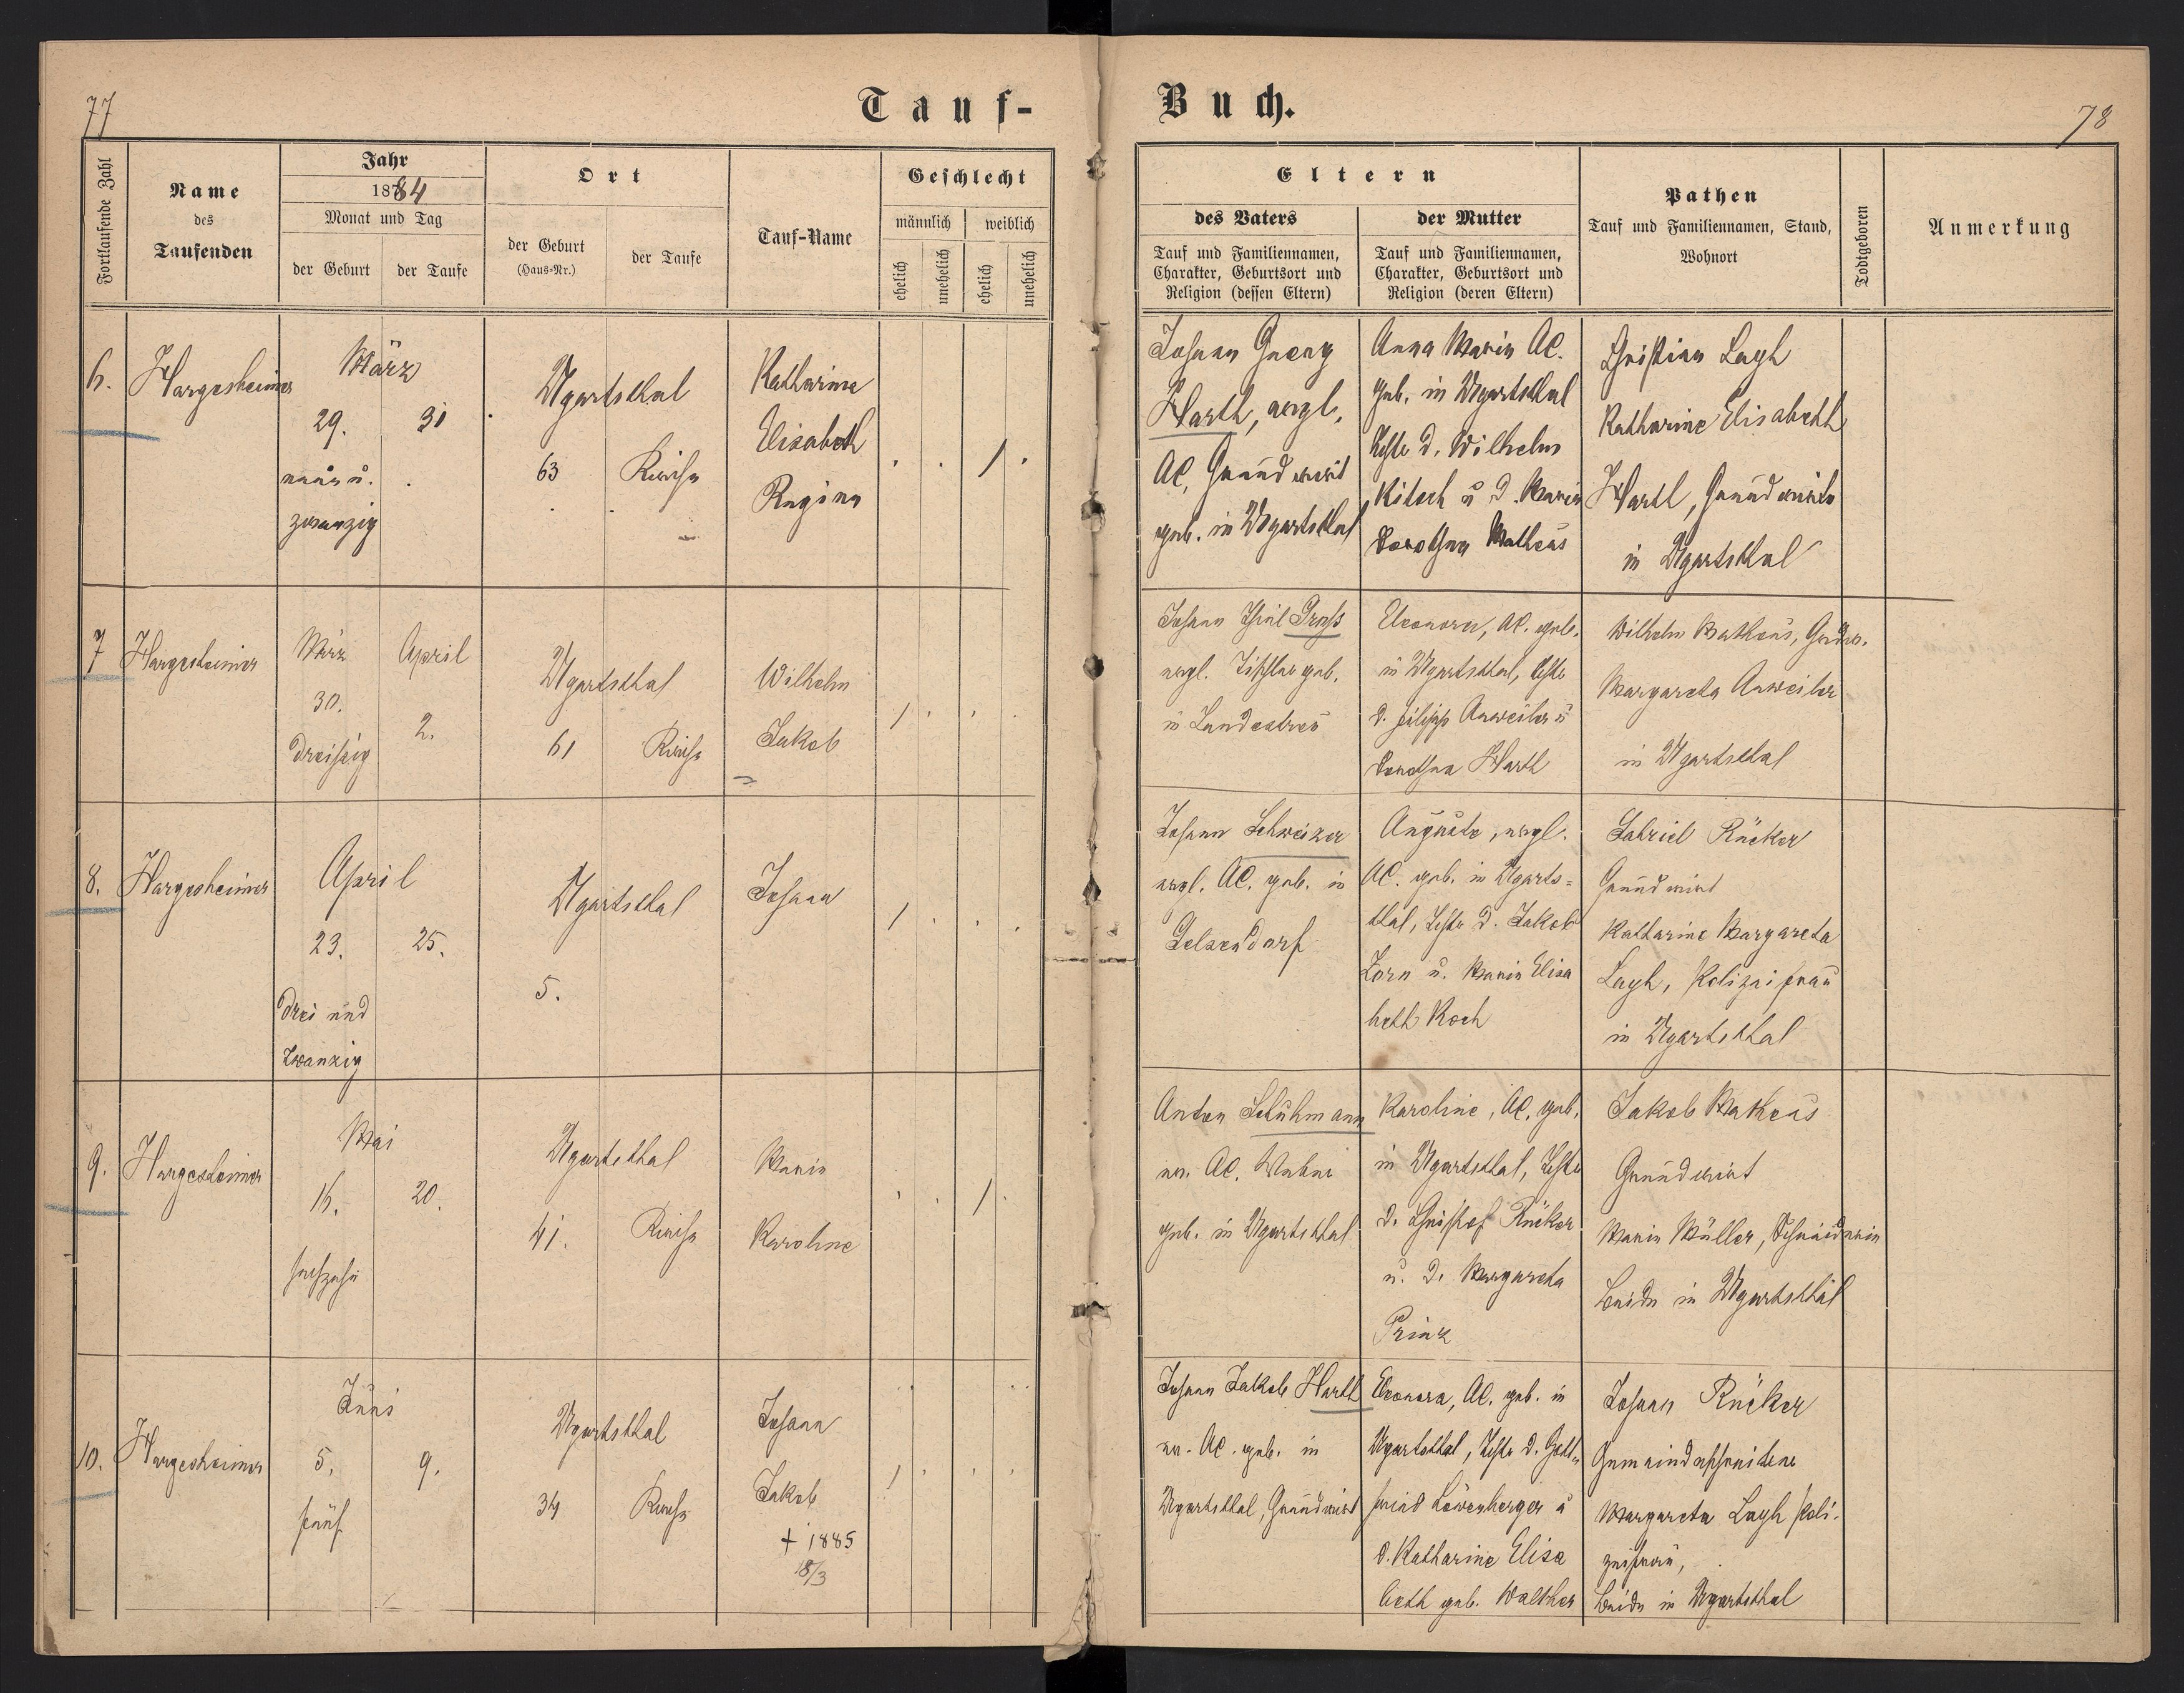 77
Tauf-
Buch.
78
Fortlaufende Zahl
Name
des
Taufenden
Jahr
1884
Monat und Tag
der Geburt
der Taufe
Ort
der Geburt
(Haus-Nr.)
der Taufe
Tauf-Name
Geschlecht
männlich
weiblich
ehelich
unehelich
ehelich
unehelich
Eltern
des Vaters
Tauf und Familiennamen,
Charakter, Geburtsort und
Religion (dessen Eltern)
der Mutter
Tauf und Familiennamen,
Charakter, Geburtsort und
Religion (deren Eltern)
Pathen
Tauf und Familiennamen, Stand,
Wohnort
Todtgeboren
Anmerkung
6.
Hargesheimer
März
29.
31
neun u.
zwanzig
Ugartsthal
63
Kirche
Katharina
Elisabeth
Regina
/
Johann Georg
Harth, evgl.
AC, Grundwirt
geb. in Ugartsthal
Anna Maria AC.
geb. in Ugartsthal
Tchtr d. Wilhelm
Kitsch u d. Maria
Dorothea Matheus
Christian Layh
Katharine Elisabeth
Harth, Grundwirte
in Ugartsthal
7
Hargesheimer
März
April
30.
2.
dreissig
Ugartsthal
61
Kirche
Wilhelm
Jakob
/
Johann Gross
evgl. Tischler geb.
in Landestreu
Eleonora, AC. geb.
in Ugartsthal, Tchtr
d. Filipp Anweiler u
Dorothea Harth
Wilhelm Matheus, Grdw.
Margareta Anweiler
in Ugartsthal
8.
Hargesheimer
April
23.
25.
drei und
zwanzig
Ugartsthal
5.
Johann
/
Johann Schweizer
evgl. AC. geb. in
Gelsendorf
Auguste, evgl.
AC. geb. in Ugarts=
thal, Tchtr d. Jakob
Zorn u. Maria Elisa
beth Koch
Gabriel Rücker
Grundwirt
Katharine Margareta
Layh, Polizeifrau
in Ugartsthal
9.
Hargesheimer
Mai
16.
20.
sechzehn
Ugartsthal
41.
Kirche
Maria
Karoline
/
Anton Schuhmann
ev. AC. Weber
geb. in Ugartsthal
Karoline, AC. geb.
in Ugartsthal, Tchtr
d. Christof Rücker
u. d. Margareta
Prinz
Jakob Matheus
Grundwirt
Maria Müller, Schneiderin
beide in Ugartsthal
10.
Hargesheimer
Juni
5.
9.
fünf
Ugartsthal
34
Kirche
Johann
Jakob
+ 1885
18/3
/
Johann Jakob Harth
ev. AC. geb. in
Ugartsthal, Grundwirt
Eleonora, AC. geb. in
Ugartsthal, Tchtr d. Gott=
fried Löwenberger u
d. Katharine Elisa
beth geb. Walther
Johann Rücker
Gemeindeschreiber
Margareta Layh Poli-
zeifrau,
beide in Ugartsthal